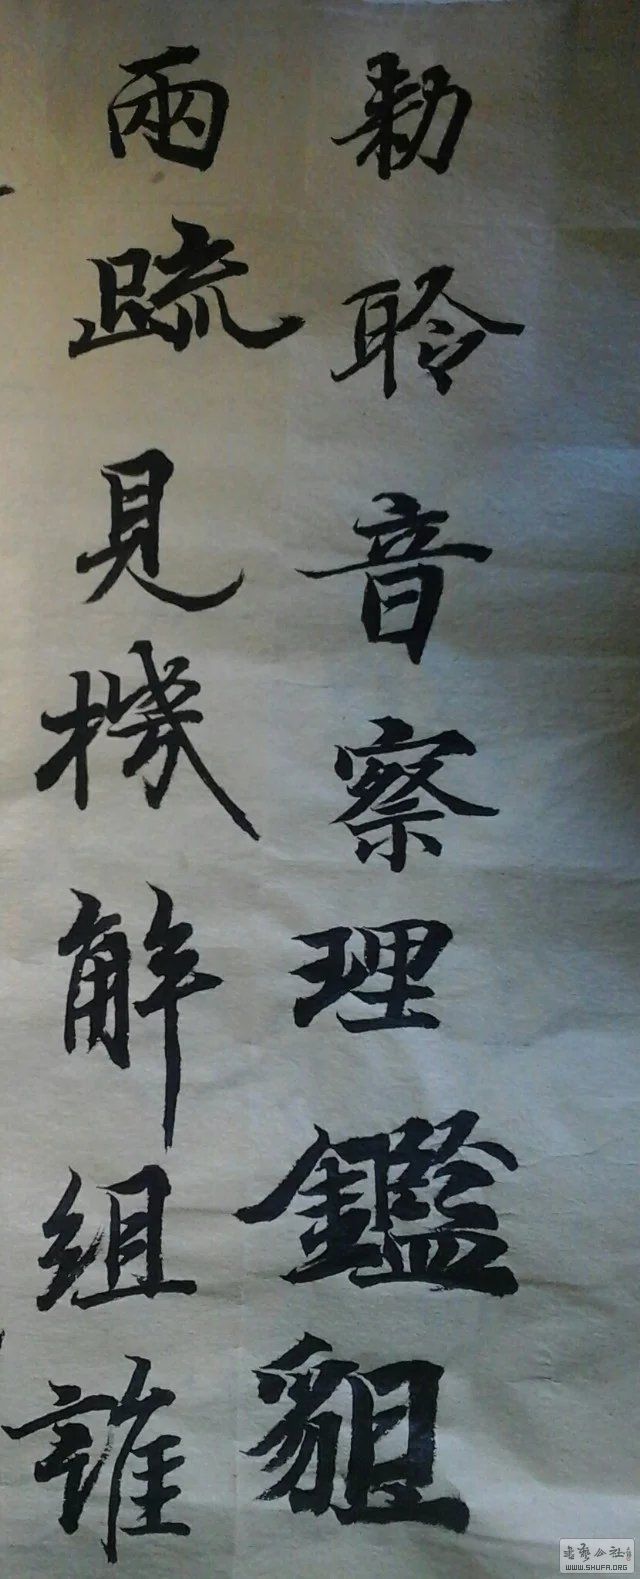 勑聆音察理鑑貌
兩疏見機解組誰
书艺公社
WWW.SHUFA.ORG